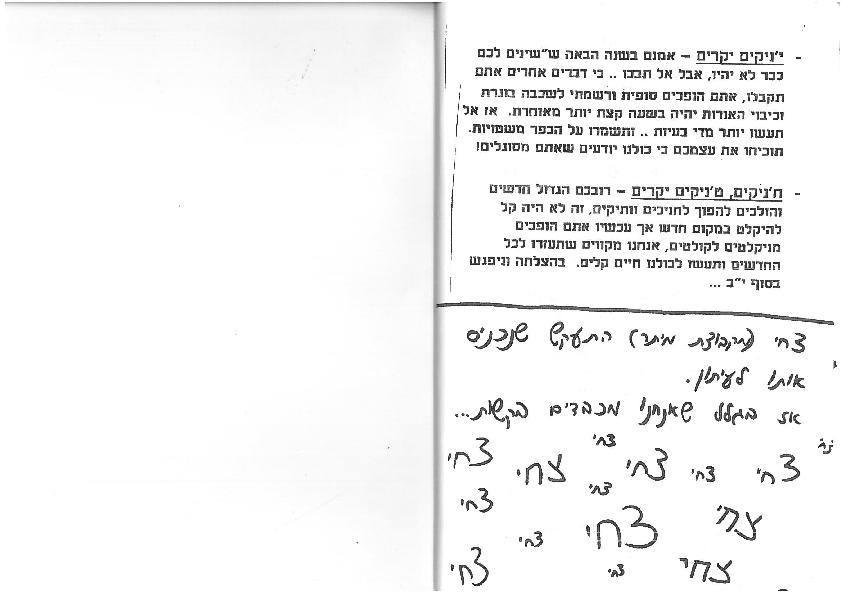 - י'ניקים יקרים – אמנם בשנה הבאה ש"שינים לכם
ככר לא יהיו, אבל אל תבכו .. כי דברים אחרים אתם
תקבלו, אתם הופכים סופית ורשמתי לשכבה בוגרת
וכיבוי האורות יהיה בשעה קצת יותר מאוחרת. אז אל
תעשו יותר מדי בעיות .. ותשמרו על הכפר משטויות.
תוכיחו את עצמכם כי כולנו יודעים שאתם מסוגלים!
- ח'ניקים, ט'ניקים יקרים – רובכם הגדול חדשים
והולכים להפוך לחניכים וותיקים, זה לא היה קל
להיקלט במקום חדש אך עכשיו אתם הופכים
מניקלטים לקולטים, אנחנו מקווים שתעזרו לכל
החדשים ותעשו לכולנו חיים קלים. בהצלחה וניפגש
בסוף י"ב ...
צחי (מקבוצת מיתר) התעקש שנכניס
אותו לעיתון.
אז בגלל שאנחנו מכבדים בקשות...
צחי צחי צחי צחי צחי צחי
צחי צחי
צחי צחי צחי
צחי צחי צחי